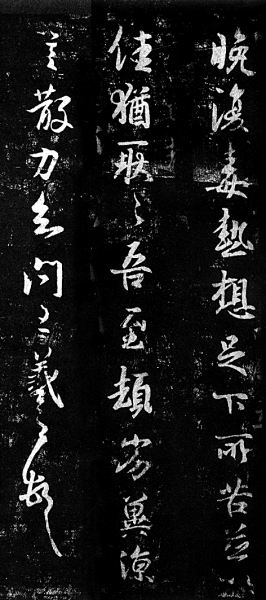 晚復毒熱想足下所苦並以
佳猶耿耿吾至頓劣冀涼
言散力知問王羲之頓首